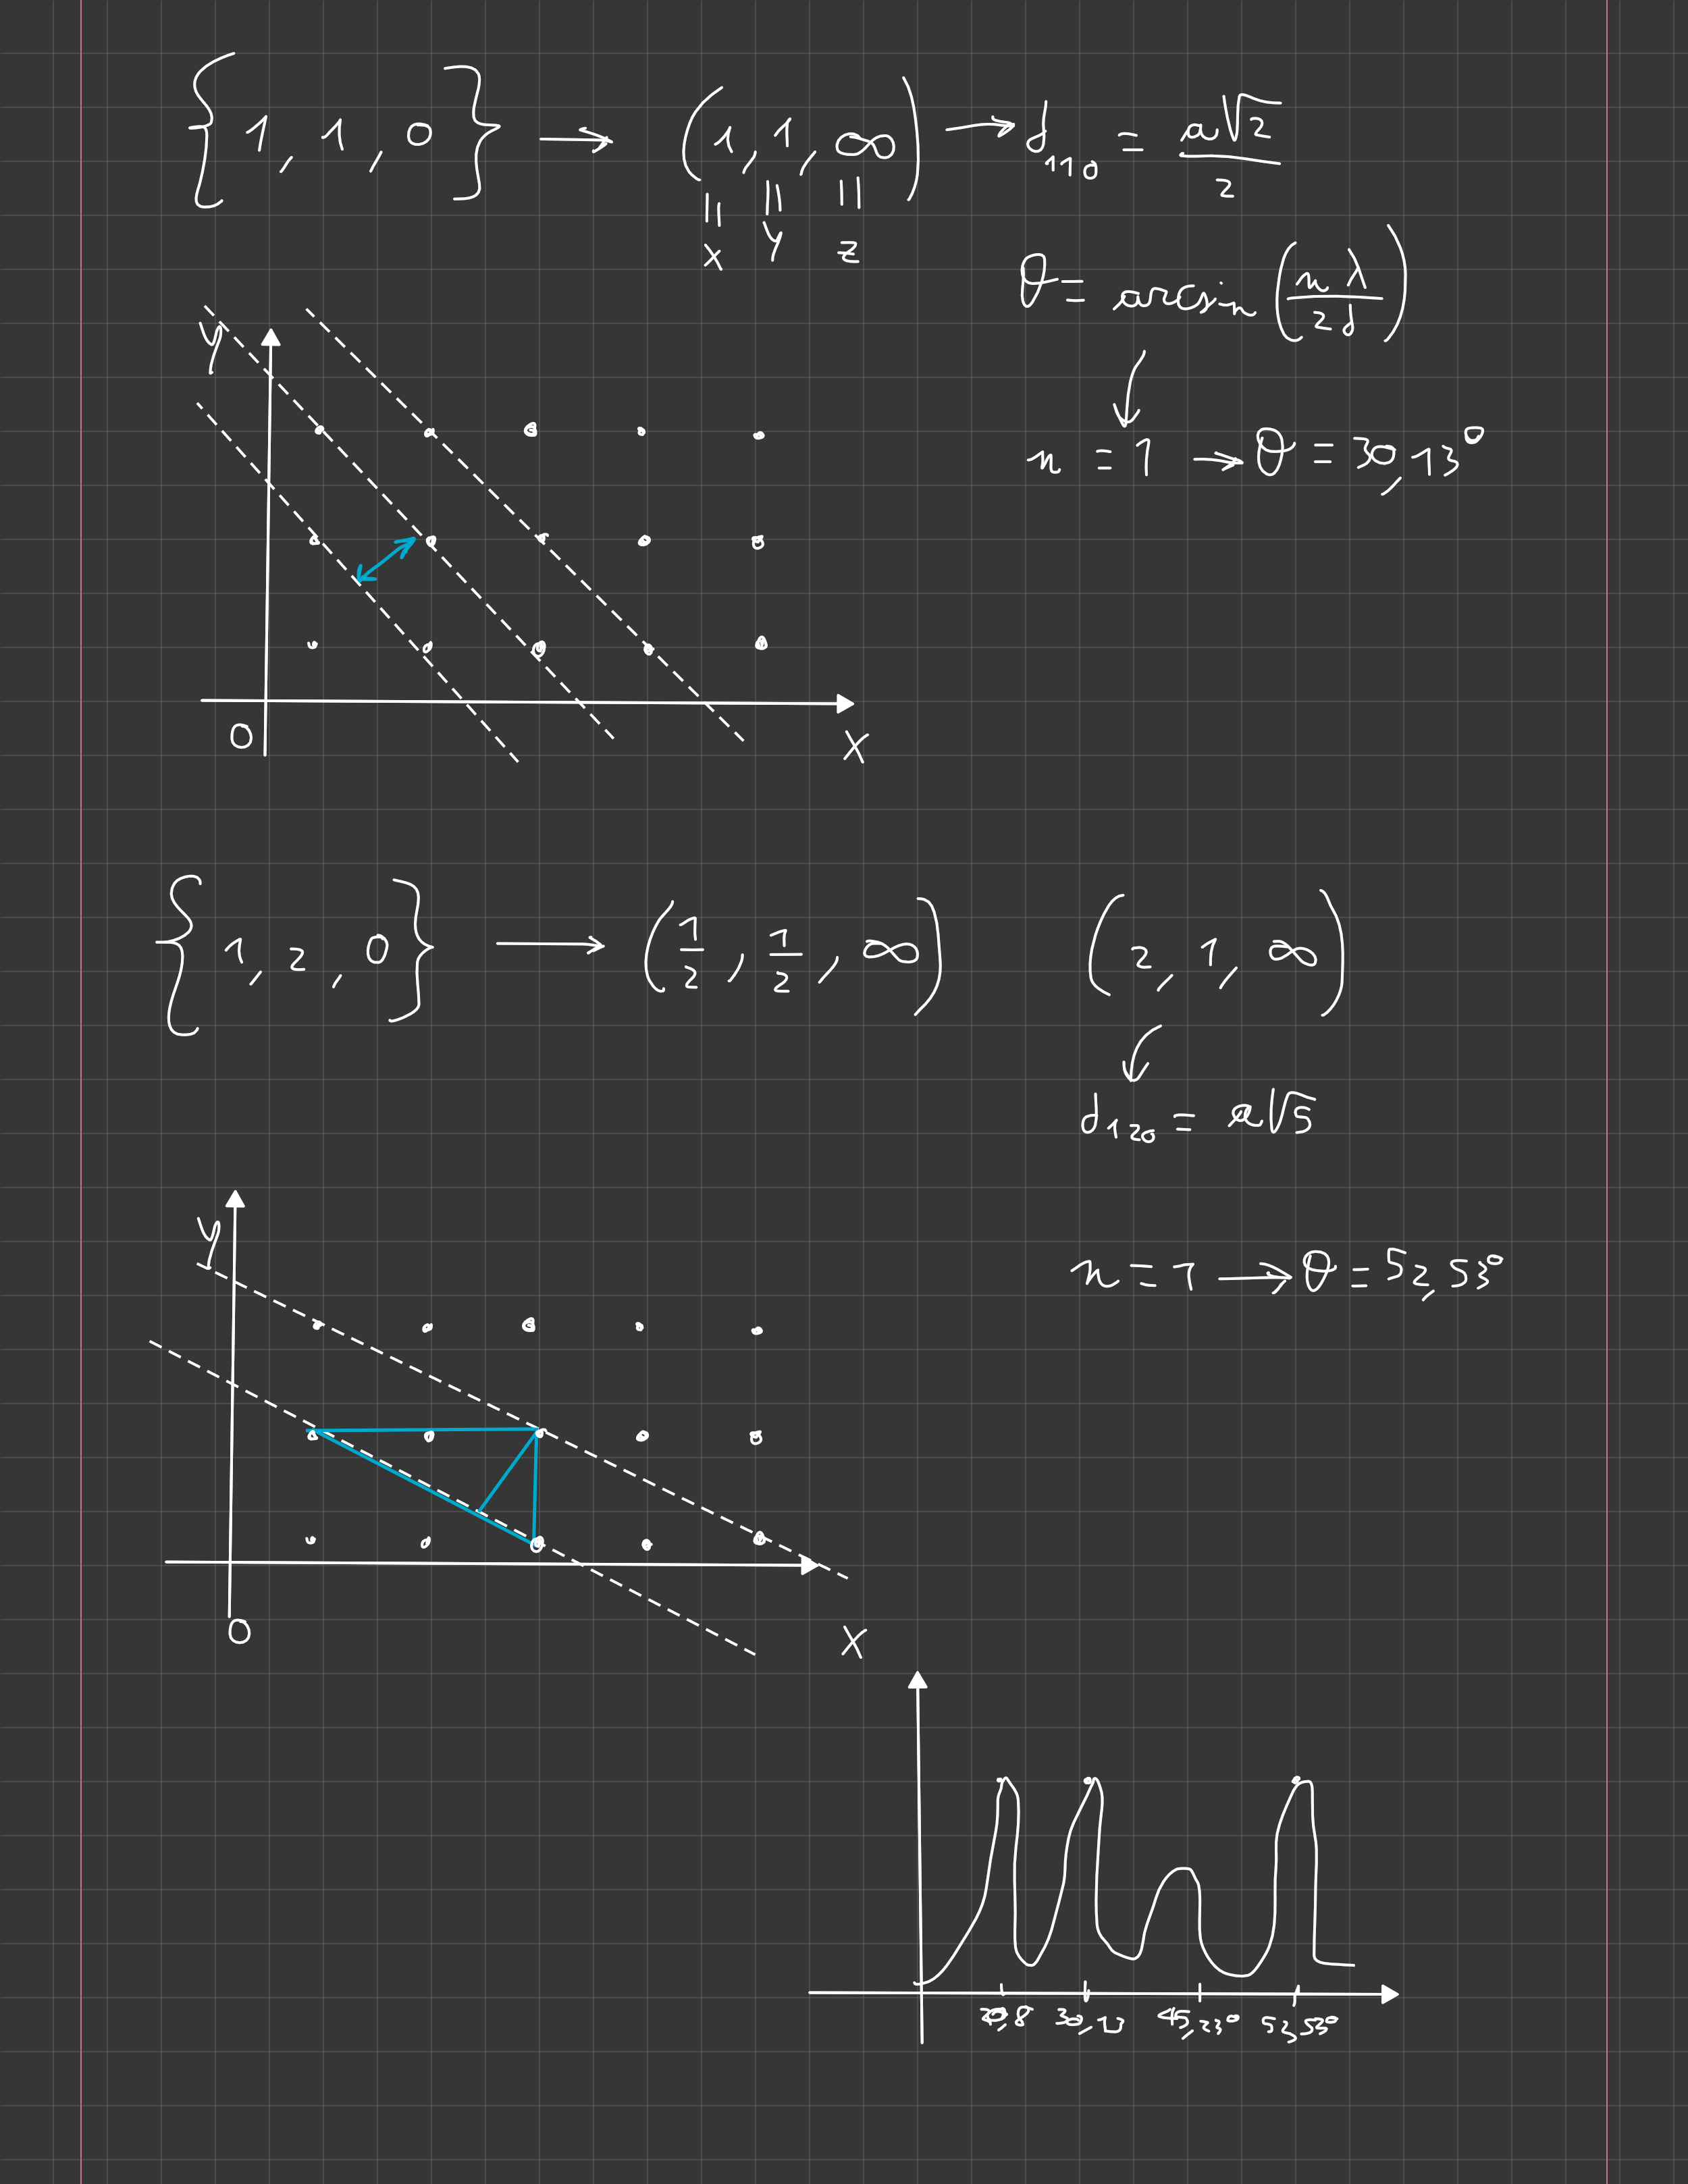 {1, 1, 0} → (1, 1, ∞) → d₁₁₀ = a√2/2
|| || ||
x y z
θ = arcsin (nλ/2d)
n = 1 → θ = 30,13°
y
0
x
{1, 2, 0} → (1/2, 1/2, ∞) (2, 1, ∞)
d₁₂₀ = a√5
n = 1 → θ = 52,53°
y
0
x
30,13 45,23° 52,53°